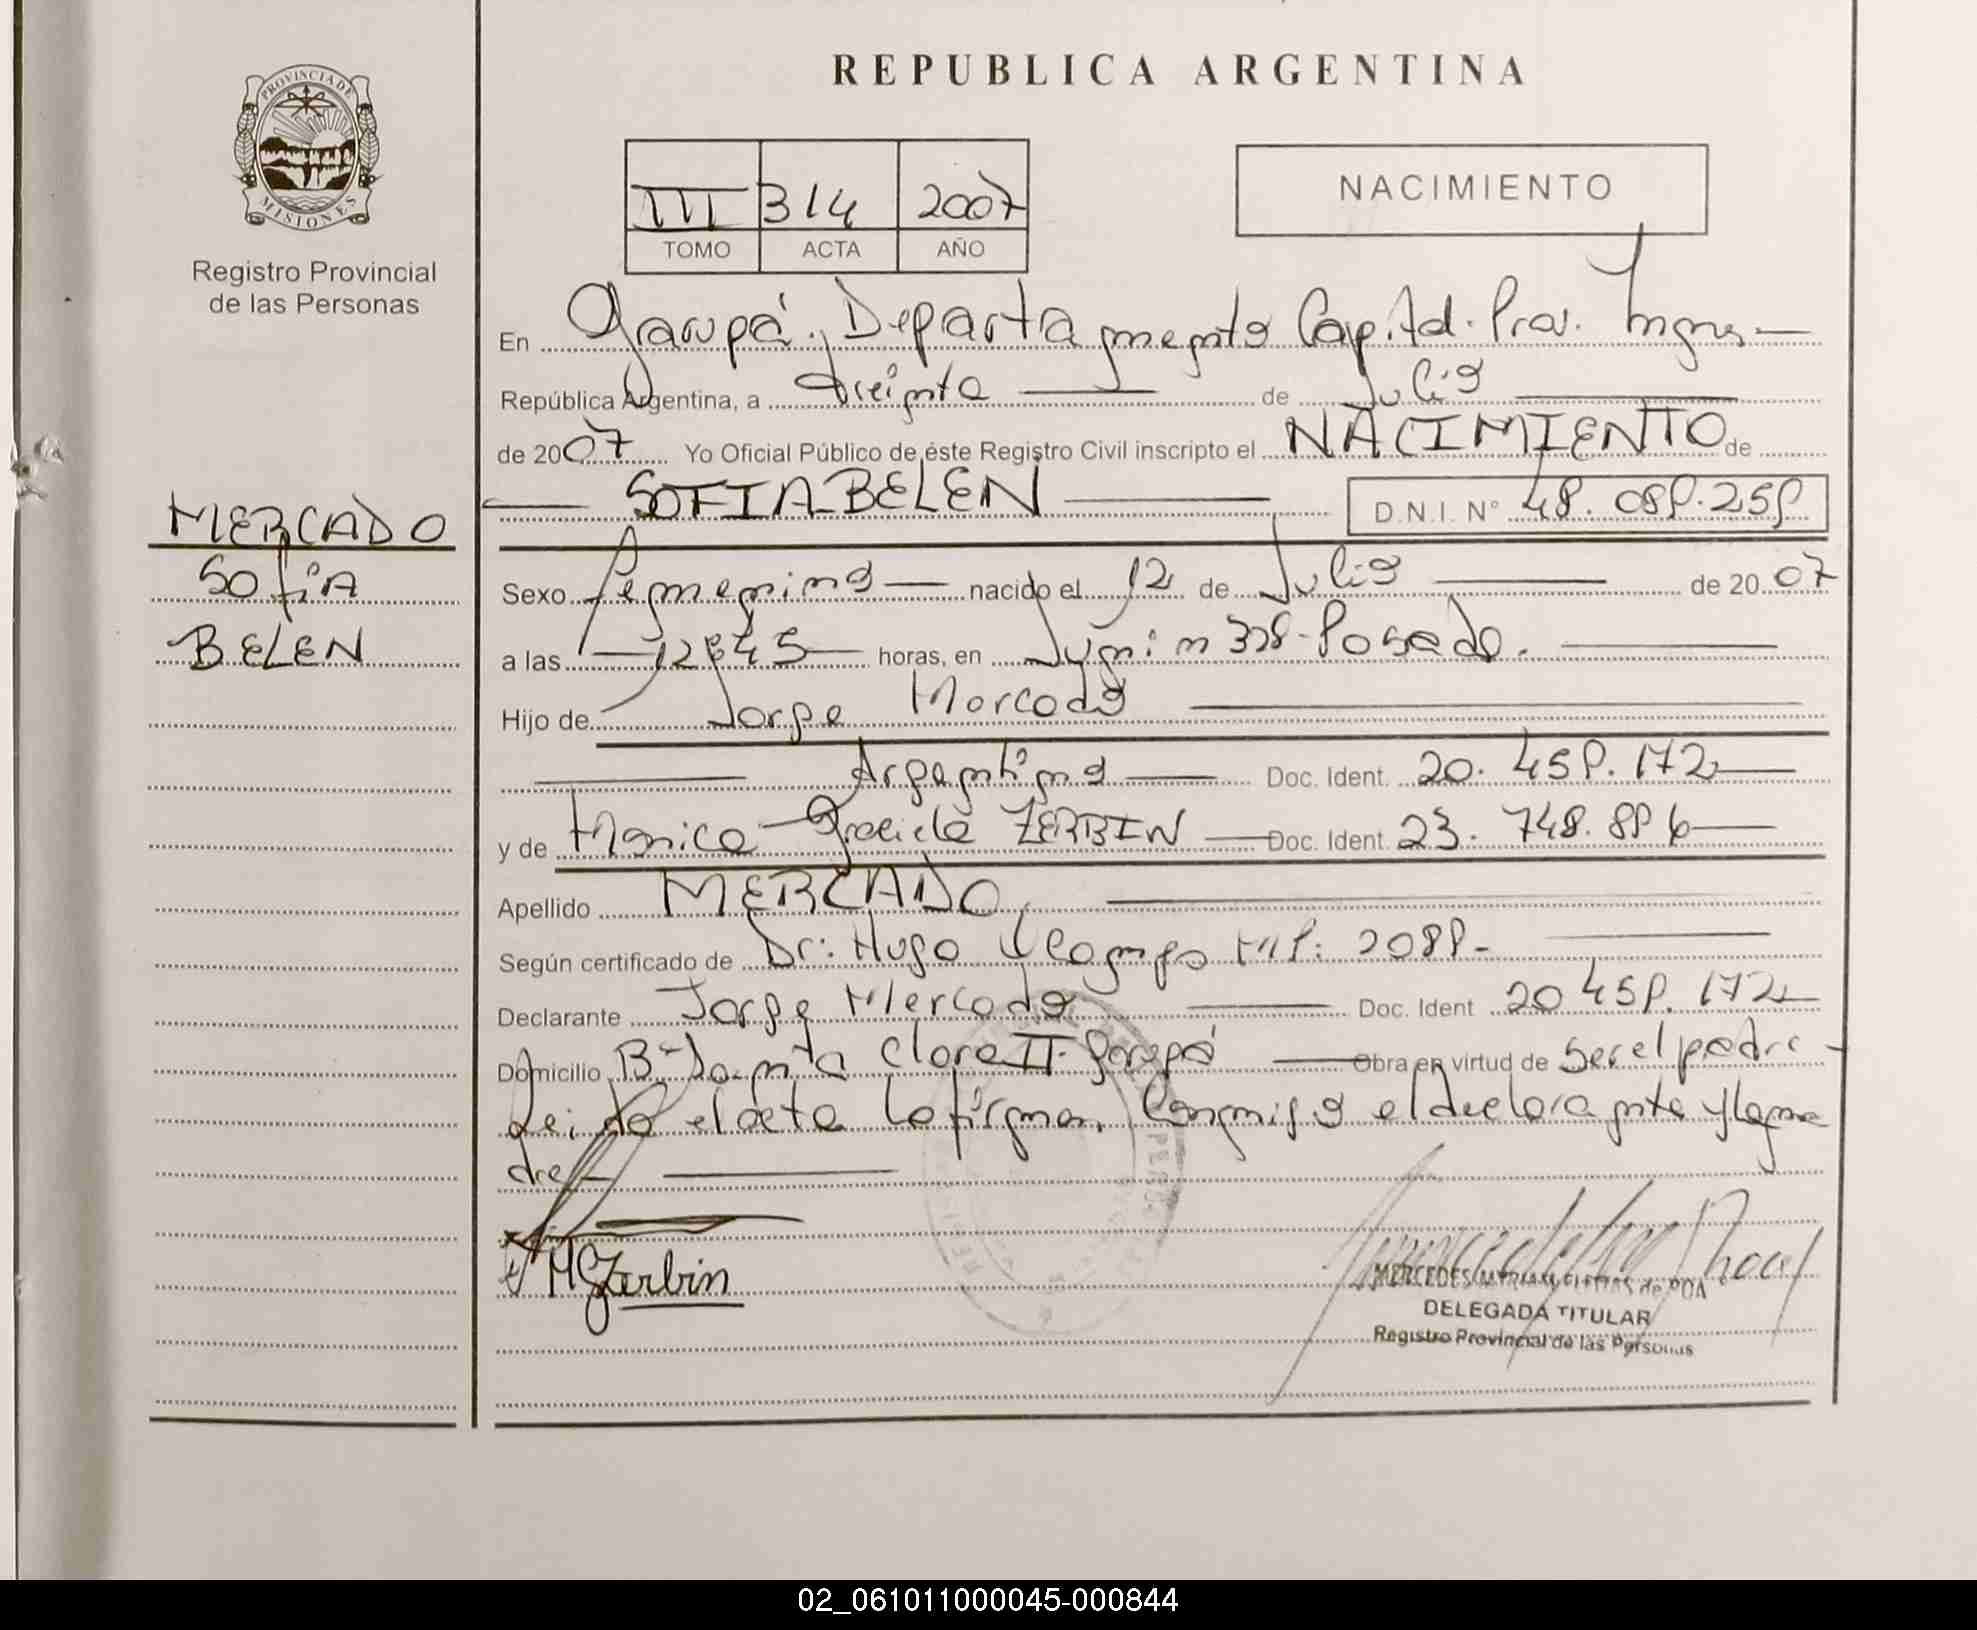 REPUBLICA ARGENTINA
PROVINCIA DE
MISIONES
Registro Provincial
de las Personas
III 314 2007
TOMO ACTA AÑO
NACIMIENTO
En Garupá, Departamento Capital. Prov.
República Argentina, a treinta de Julio
de 2007 Yo Oficial Público de éste Registro Civil inscripto el NACIMIENTO de
SOFIA BELEN D.N.I. N° 48.089.259
MERCADO
SOfiA
BELEN
Sexo femenino nacido el 12 de Julio de 2007
a las 12,45 horas, en Junin 328-Posadas.
Hijo de Jorge Mercado
Argentino Doc. Ident. 20.459.172
y de Monica Graciela ZERBIN Doc. Ident. 23.748.896
Apellido MERCADO
Según certificado de Dr: Hugo MP: 2089-
Declarante Jorge Mercado Doc. Ident 20 459.172
Domicilio B° Santa Clara II-Garupá Obra en virtud de ser el padre-
Leida el acta la firman conmigo el declarante y la ma
dre
MGZerbin
MERCEDES MYRIAM de POA
DELEGADA TITULAR
Registro Provincial de las Personas
02_061011000045-000844